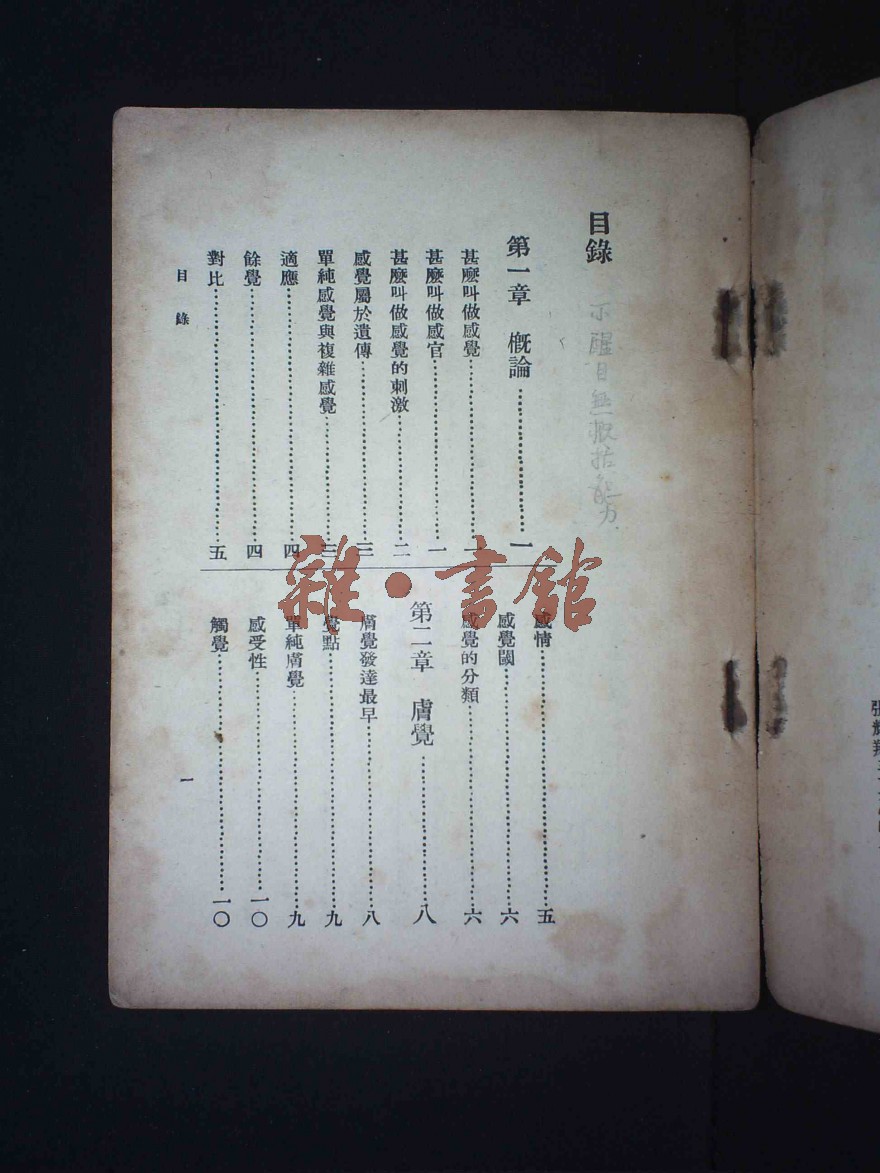 目錄
不醒目無概括能力
第一章　概論…………一
甚麼叫做感覺…………一
甚麼叫做感官…………一
甚麼叫做感覺的刺激…………二
感覺屬於遺傳…………三
單純感覺與複雜感覺…………三
適應…………四
餘覺…………四
對比…………五
感情…………五
感覺閾…………六
感覺的分類…………六
第二章　膚覺…………八
膚覺發達最早…………八
覺點…………九
單純膚覺…………九
感受性…………一〇
觸覺…………一〇
目錄
一
雜·書館